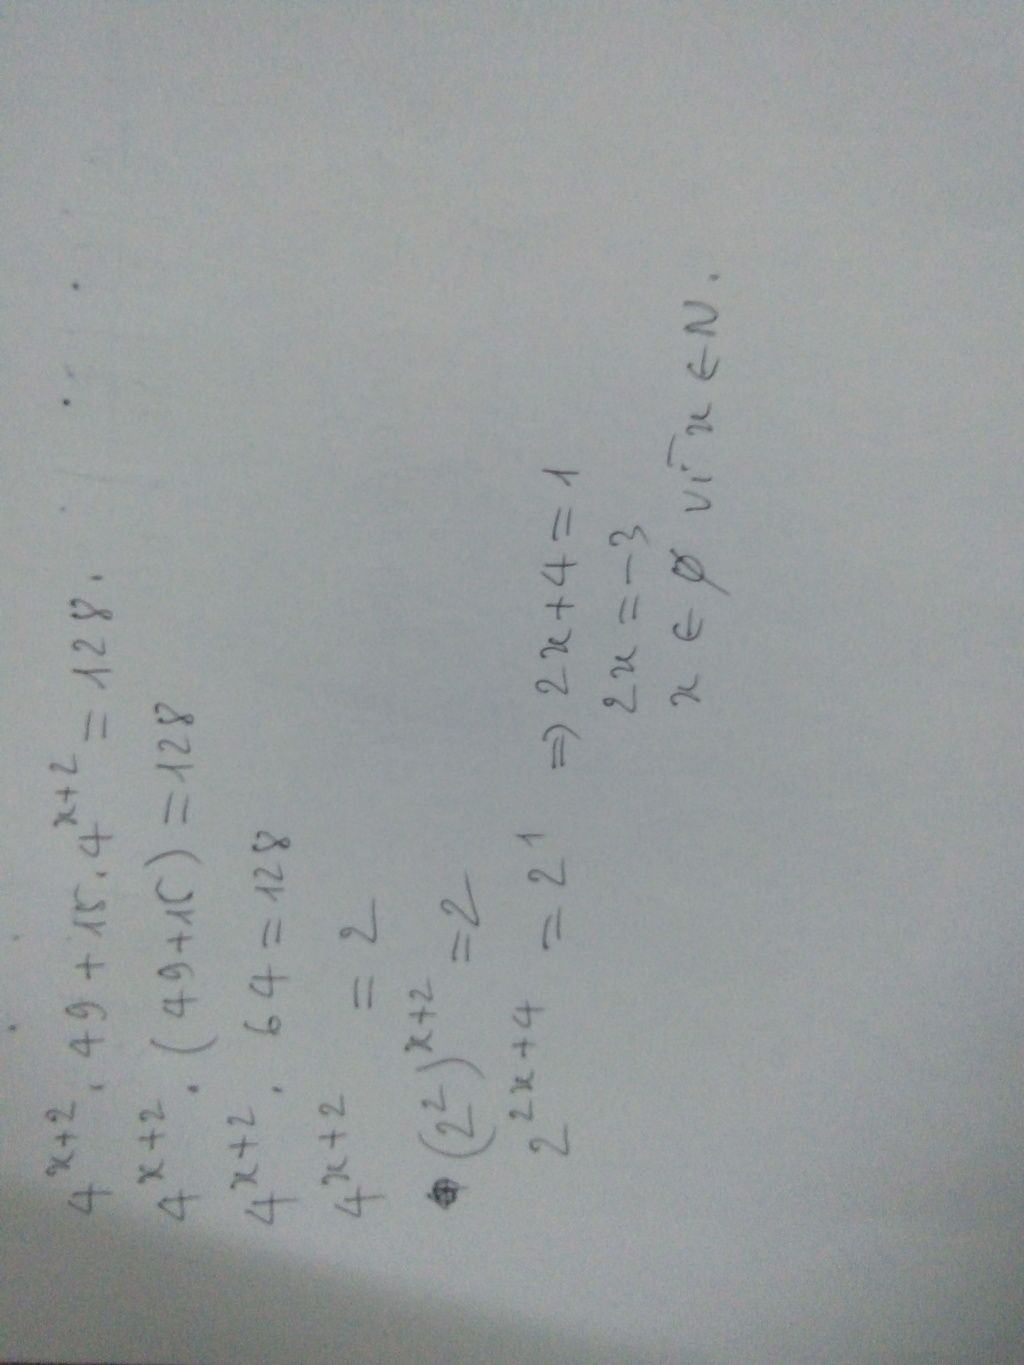 4^{x+2} . 49 + 15 . 4^{x+2} = 128 .
4^{x+2} . (49+15) = 128
4^{x+2} . 64 = 128
4^{x+2} = 2
(2^2)^{x+2} = 2
2^{2x+4} = 2^1 => 2x+4 = 1
2x = -3
x ∈ ∅ vì x ∈ N .